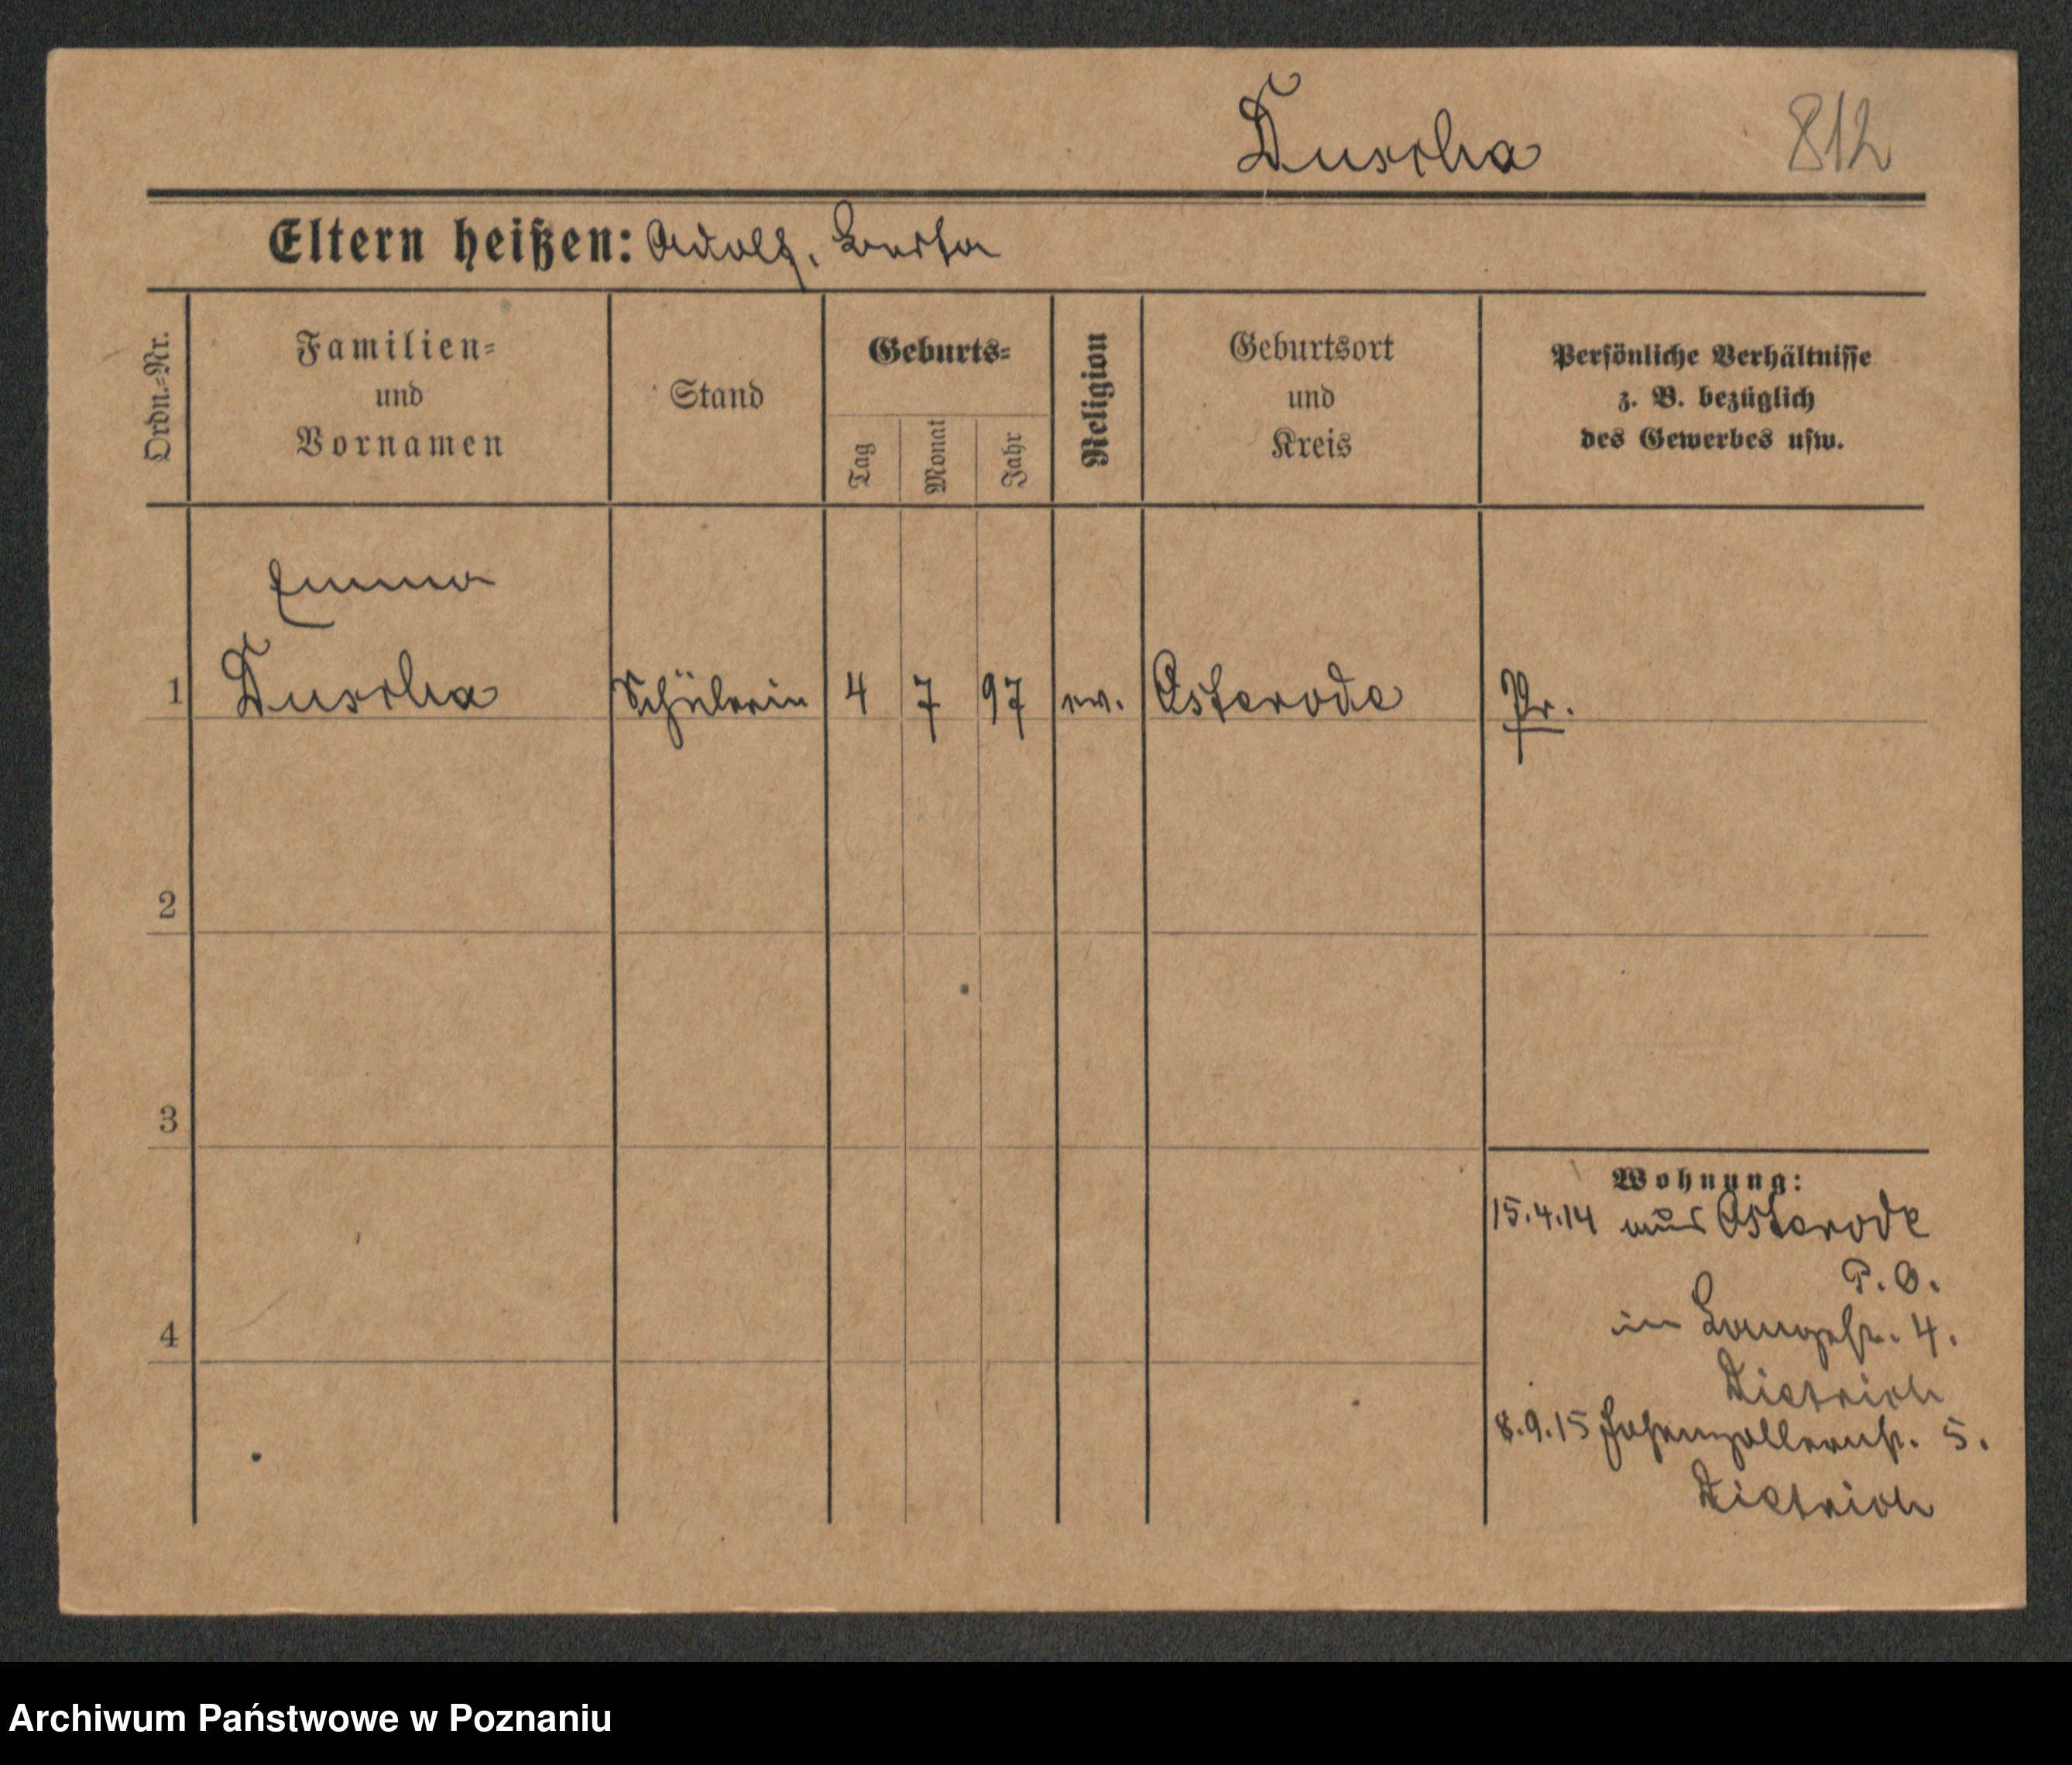 Duscha 812
Eltern heißen: Adolf, Berta
Ordn.-Nr.
Familien-
und
Vornamen
Stand
Geburts-
Tag
Monat
Jahr
Religion
Geburtsort
und
Kreis
Persönliche Verhältnisse
z. B. bezüglich
des Gewerbes usw.
Emma
1 Duscha Schülerin 4 7 97 ev. Osterode Pr.
2
3
4
Wohnung:
15.4.14 aus Osterode
P. O.
in Langestr. 4.
Dietrich
8.9.15 Hohenzollernstr. 5.
Dietrich
Archiwum Państwowe w Poznaniu